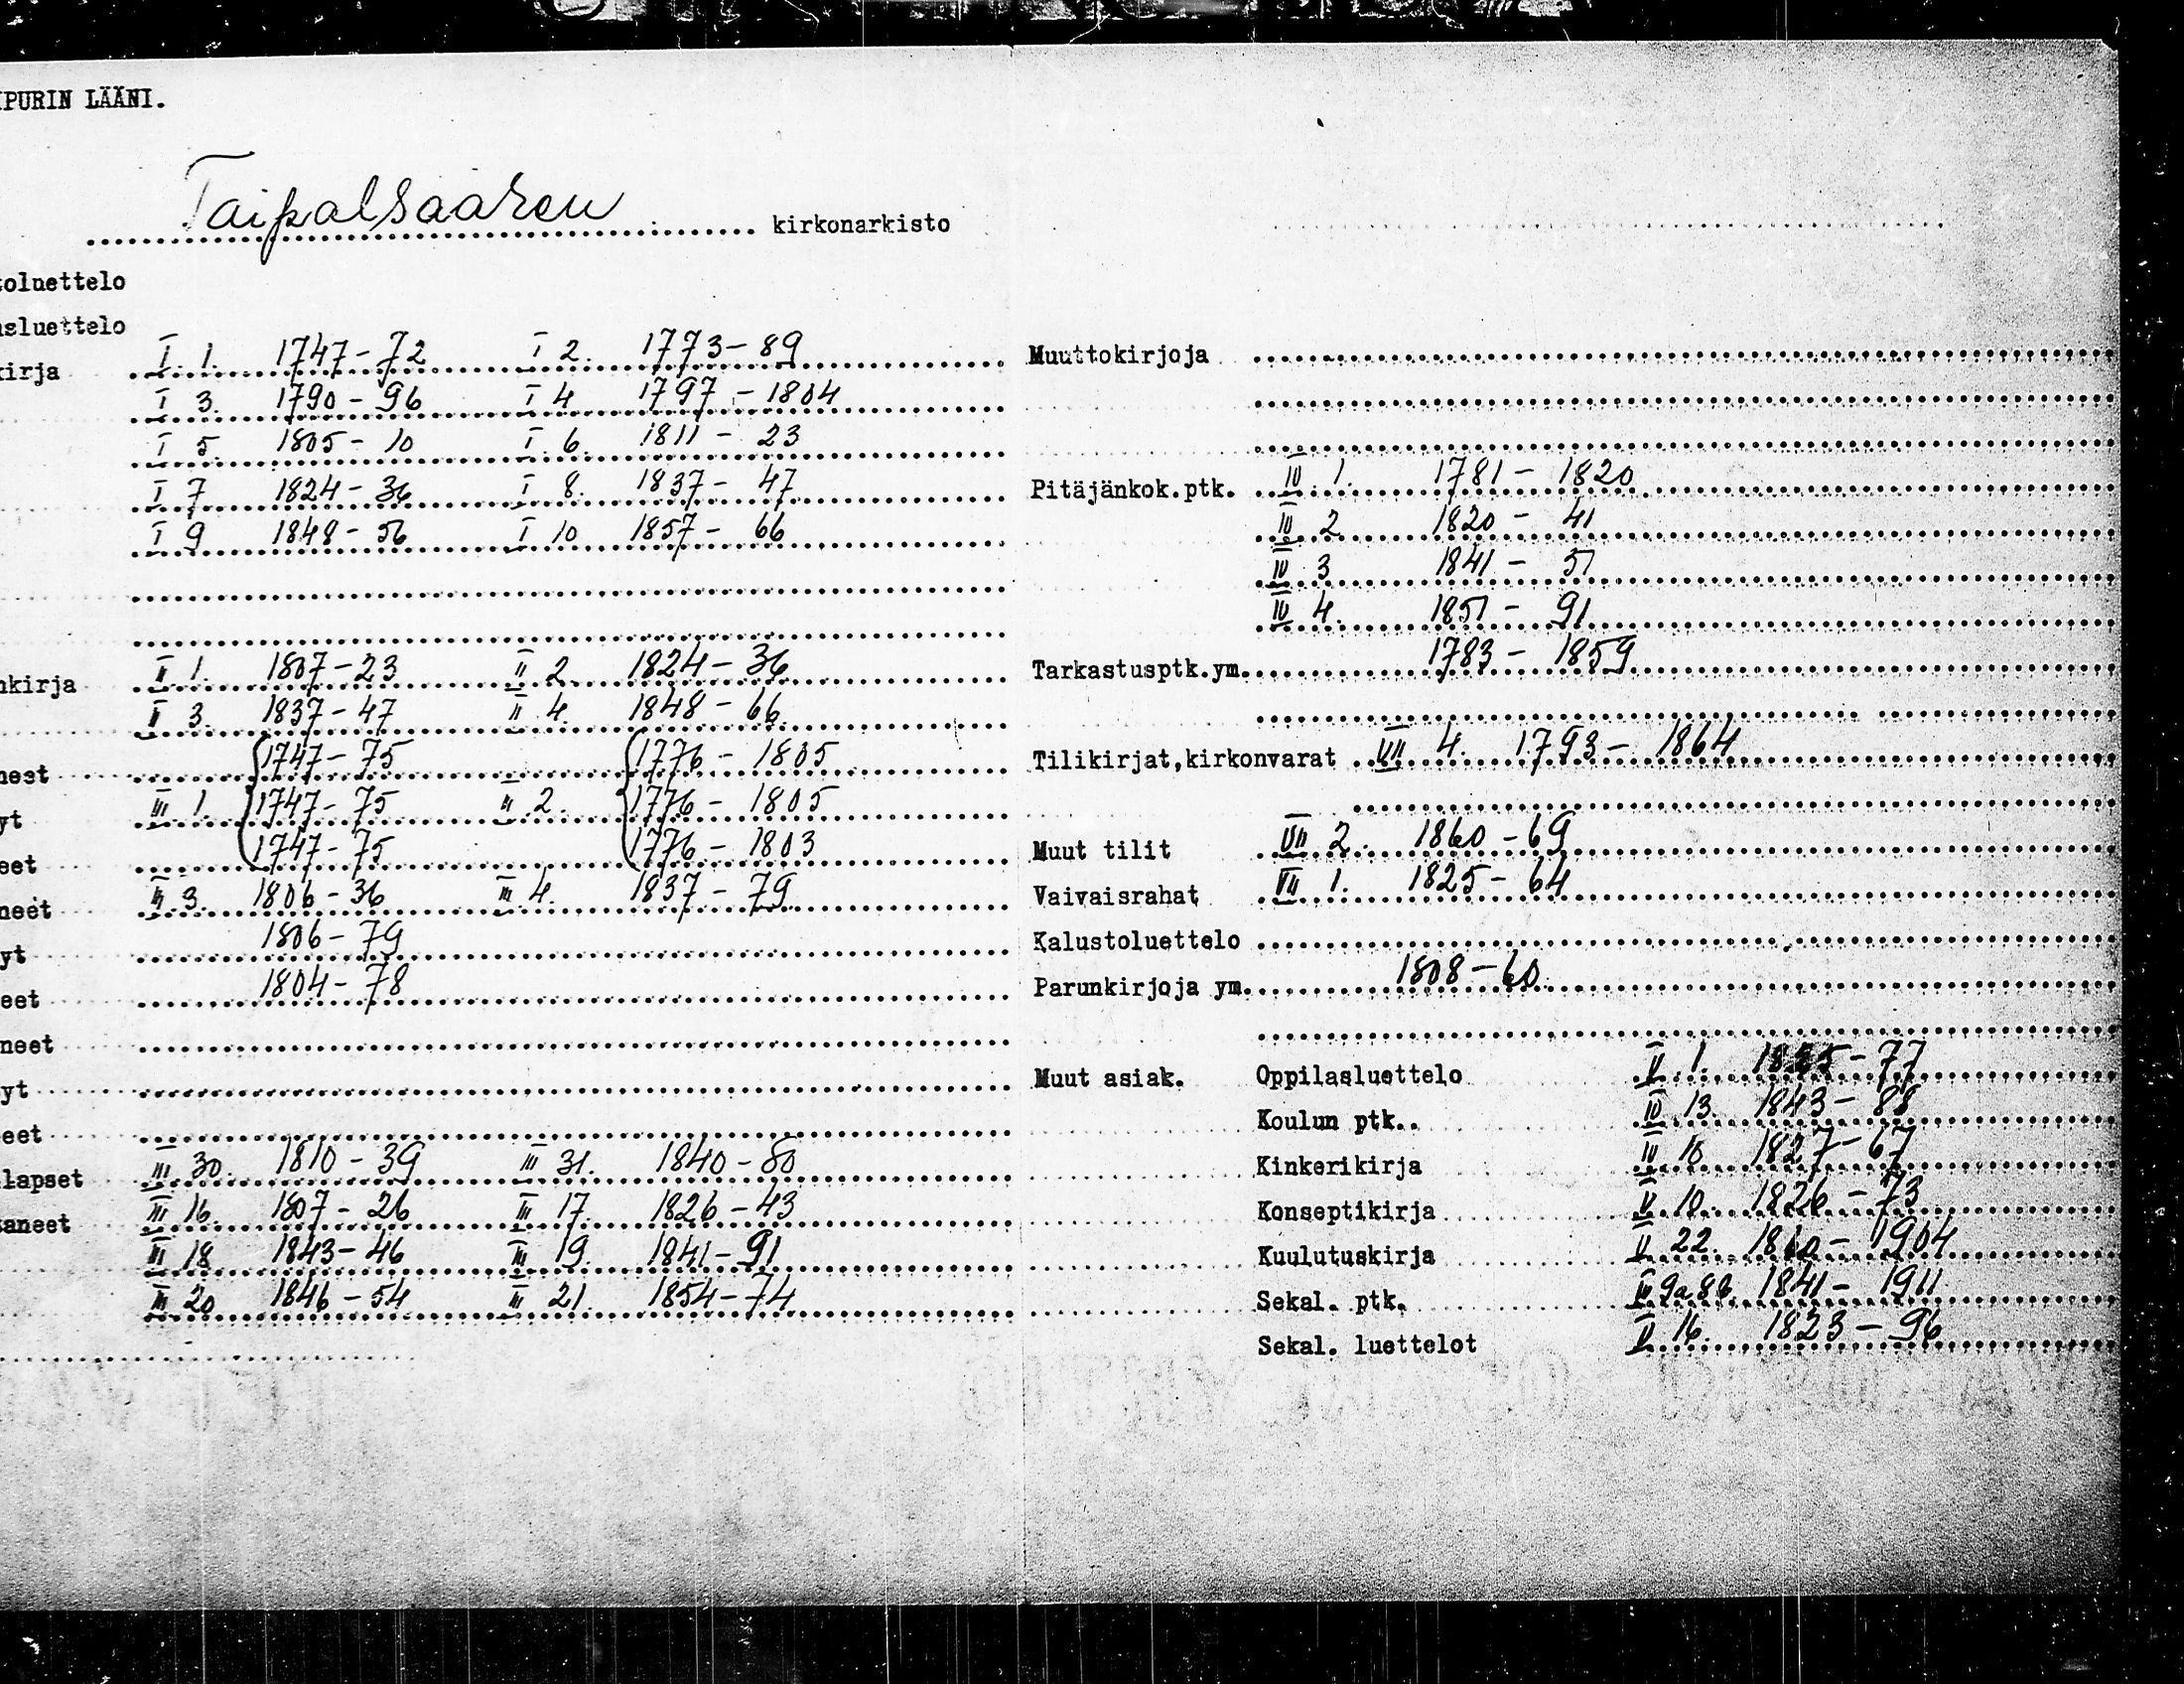 IPURIN LÄÄNI.
Taipalsaaren kirkonarkisto
toluettelo
usluettelo
kirja I 1. 1747-72 I 2. 1773-89
I 3. 1790-96 I 4 1797-1804
I 5. 1805-10 I 6. 1811-23
I 7 1824-36 I 8. 1837-47
I 9 1848-56 I 10 1857-66
nkirja II 1. 1807-23 II 2. 1824-36
II 3. 1837-47 II 4. 1848-66
neet 1747-75 1776-1805
yt III 1. 1747-75 III 2. 1776-1805
eet 1747-75 1776-1803
neet III 3. 1806-36 III 4. 1837-79
yt 1806-79
eet 1804-78
neet
yt
eet
lapset III 30. 1810-39 III 31. 1840-80
aneet III 16. 1807-26 III 17. 1826-43
III 18 1843-46 III 19. 1841-91
III 20 1846-54 III 21. 1854-74
Muuttokirjoja
Pitäjänkok.ptk. IV 1. 1781-1820
IV 2 1820-41
IV 3 1841-51
IV 4. 1851-91
Tarkastusptk.ym. 1783-1859
Tilikirjat,kirkonvarat VII 4. 1793-1864
Muut tilit VII 2. 1860-69
Vaivaisrahat VII 1. 1825-64
Kalustoluettelo
Parunkirjoja ym. 1808-60
Muut asiak. Oppilasluettelo 1. -77
Koulun ptk.. IV 13. 1843-88
Kinkerikirja 1827-67
Konseptikirja 10. 1826-73
Kuulutuskirja 22. -1904
Sekal. ptk. 1841-1911
Sekal. luettelot 16. 1823-96